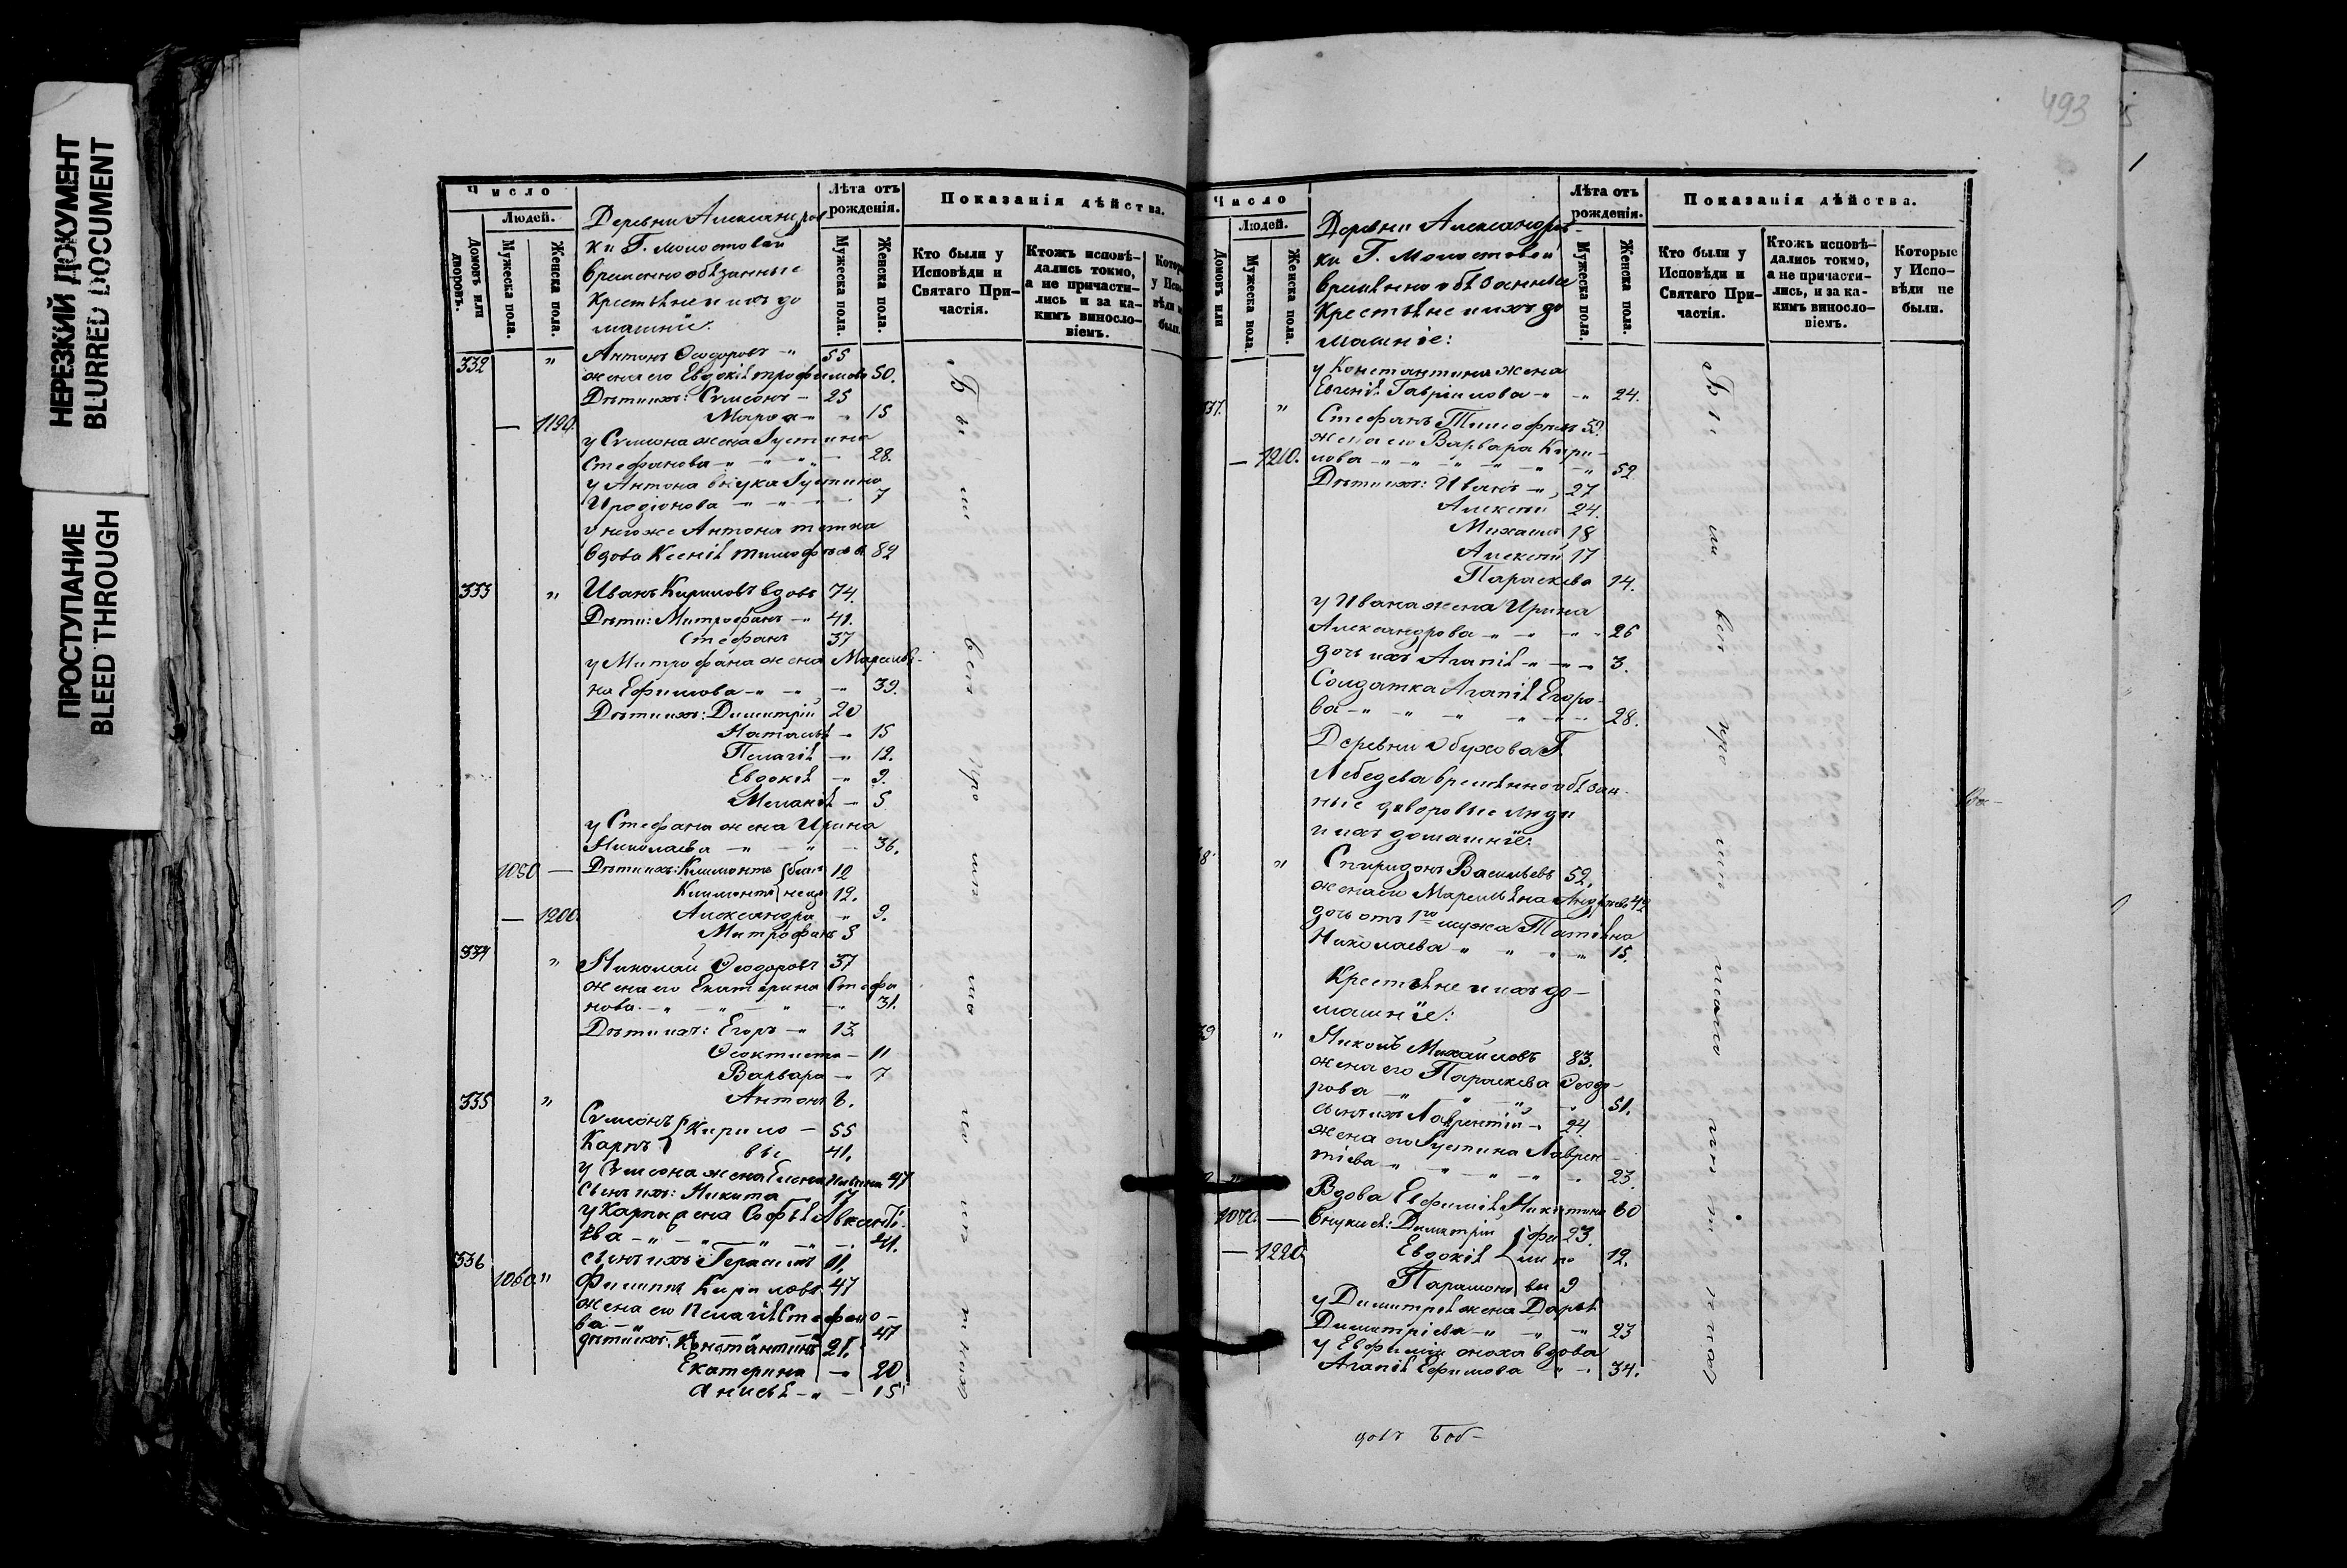 НЕРЕЗКИЙ ДОКУМЕНТ
BLURRED DOCUMENT
ПРОСТУПАНИЕ
BLEED THROUGH
Число
Людей.
Домовъ или дворовъ.
Мужеска пола.
Женска пола.
Деревни Александров
ки Г. Молостовой
временнообязанные
Крестьяне и ихъ до
машніи:
Лѣта отъ рожденія.
Мужеска пола.
Женска пола.
Показанія дѣйства.
Кто были у Исповѣди и Святаго Причастія.
Ктожъ исповѣдались токмо, а не причастились и за какимъ винословіемъ.
332 " Антонъ Ѳеодоровъ 55
жена его Евдокія Трофимова 50.
Дѣти ихъ: Сѵмеонъ 25
1190. Марѳа 15
у Сѵмеона жена Іустина
Стефанова 28.
у Антона внука Іустина
Иродіонова 7
у негоже Антона тетка
вдова Ксенія Тимоѳѣева 82
333 " Иванъ Кириловъ вдовъ 74.
Дѣти: Митрофанъ 41.
Стефанъ 37
у Митрофана жена Маремья-
на Ефимова 39.
Дѣти ихъ: Димитрій 20
Наталья 15
Пелагія 12.
Евдокія 9.
Меланія 5
у Стефана жена Ирина
Николаева 36.
1050 Дѣти ихъ: Климентъ близ 12
Климентъ нецы 12.
1200. Александра 9.
Митрофанъ 5
334 " Николай Ѳеодоровъ 37
жена его Екатерина Стефа
нова 31.
Дѣти ихъ: Егоръ 13.
Ѳеоктиста 11
Варвара 7
335 " Антонъ 6.
Сѵмеонъ Кирило 55
Карпъ вы 41.
у Сѵмеона жена Елена 47
сынъ ихъ: Никита 17
у Карпа жена Софья
ева 41.
336 сынъ ихъ Герасимъ 11.
1060. " Филиппъ Кириловъ 47
жена его Пелагія Стефано-
ва 47
дѣти ихъ: Константинъ 21.
Екатерина 20
Анисья 15
Были вси у
493
Число
Людей.
Домовъ или
Мужеска пола.
Женска пола.
Деревни Александров-
ки Г. Молостовой
временнообязанные
Крестьяне и ихъ до
машніе:
Лѣта отъ рожденія.
Мужеска пола.
Женска пола.
Показанія дѣйства.
Кто были у Исповѣди и Святаго Причастія.
Ктожъ исповѣдались токмо, а не причастились, и за какимъ винословіемъ.
Которые у Исповѣди не были.
у Константина жена
Евгенія Гавріилова 24.
37. " Стефанъ Тимоѳѣевъ 52.
жена его Варвара Кири-
1210. лова 52
Дѣти ихъ: Иванъ 27
Алексѣй 24.
Михаилъ 18
Алексѣй 17
Параскева 14.
у Ивана жена Ирина
Александрова 26
дочь ихъ Агапія 3.
Солдатка Агапія Егоро-
ва 28.
Деревни Обухова Г.
Лебедева временнообязан-
ные дворовые люди
и ихъ домашніе:
8 " Спиридонъ Васильевъ 52.
жена его Маремьяна Андреева 42
дочь отъ 1го мужа Татьяна
Николаева 15.
Крестьяне и ихъ до-
машніе:
39 " Никонъ Михайловъ 83.
жена его Параскева Ѳеодо-
рова 51.
сынъ ихъ Лаврентій 24.
жена его Іустина Лаврен-
тіева 23.
Вдова Евфимія Никитина 60
1070. внуки ея: Димитрій фи 23.
1220. Евдокія ли по 12.
Парамонъ вы 9
у Димитрія жена Дарья
Димитріева 23
у Евфиміи сноха вдова
Агапія Ефимова 34.